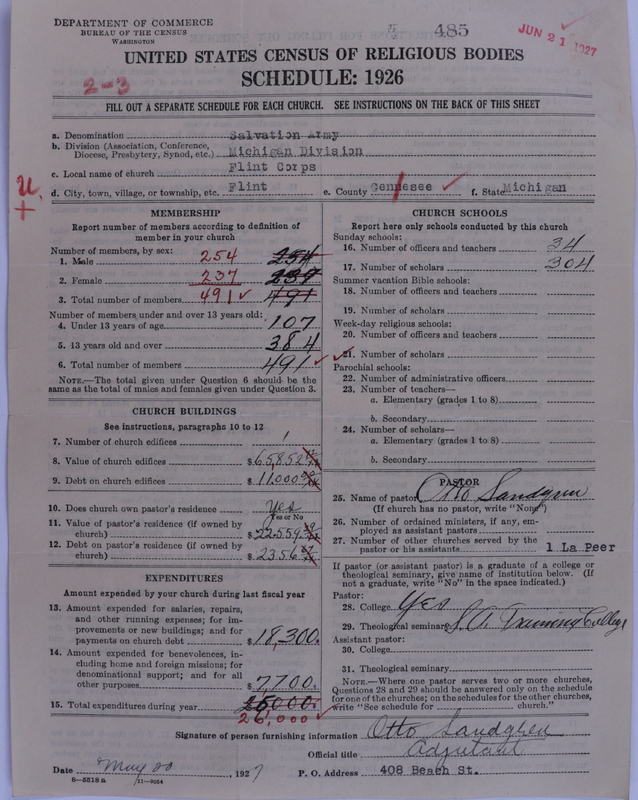 DEPARTMENT OF COMMERCE
BUREAU OF THE CENSUS
WASHINGTON
485
JUN 21 1927
UNITED STATES CENSUS OF RELIGIOUS BODIES
SCHEDULE: 1926
2-3
FILL OUT A SEPARATE SCHEDULE FOR EACH CHURCH. SEE INSTRUCTIONS ON THE BACK OF THIS SHEET
a. Denomination Salvation Army
b. Division (Association, Conference,
Diocese, Presbytery, Synod, etc.) Michigan Division
c. Local name of church Flint Corps
d. City, town, village, or township, etc. Flint e. County Gennesee f. State Michigan
MEMBERSHIP
Report number of members according to definition of
member in your church
Number of members, by sex:
1. Male 254 254
2. Female 237 237
3. Total number of members 491 491
Number of members under and over 13 years old:
4. Under 13 years of age 107
5. 13 years old and over 384
6. Total number of members 491
NOTE.—The total given under Question 6 should be the
same as the total of males and females given under Question 3.
CHURCH BUILDINGS
See instructions, paragraphs 10 to 12
7. Number of church edifices 1
8. Value of church edifices $65,852
9. Debt on church edifices $11,000
10. Does church own pastor's residence Yes
Yes or No
11. Value of pastor's residence (if owned by
church) $22,559
12. Debt on pastor's residence (if owned by
church) $2356
EXPENDITURES
Amount expended by church during last fiscal year
13. Amount expended for salaries, repairs,
and other running expenses; for im-
provements or new buildings; and for
payments on church debt $18,300.
14. Amount expended for benevolences, in-
cluding home and foreign missions; for
denominational support; and for all
other purposes $7700.
15. Total expenditures during year
26,000
CHURCH SCHOOLS
Report here only schools conducted by this church
Sunday schools:
16. Number of officers and teachers 34
17. Number of scholars 304
Summer vacation Bible schools:
18. Number of officers and teachers
19. Number of scholars
Week-day religious schools:
20. Number of officers and teachers
21. Number of scholars
Parochial schools:
22. Number of administrative officers
23. Number of teachers—
a. Elementary (grades 1 to 8)
b. Secondary
24. Number of scholars—
a. Elementary (grades 1 to 8)
b. Secondary
PASTOR
25. Name of pastor Otto Sandgren
(If church has no pastor, write "None")
26. Number of ordained ministers, if any, em-
ployed as assistant pastors
27. Number of other churches served by the
pastor or his assistants 1 La Peer
If pastor (or assistant pastor) is a graduate of a college or
theological seminary, give name of institution below. (If
not a graduate, write "No" in the space indicated.)
Pastor:
28. College Yes
29. Theological seminary S.A. Training College
Assistant pastor:
30. College
31. Theological seminary
NOTE.—Where one pastor serves two or more churches,
Questions 28 and 29 should be answered only on the schedule
for one of the churches; on the schedules for the other churches,
write "See schedule for church."
Signature of person furnishing information Otto Sandgren
Official title Adjutant
Date May 20 1927 P. O. Address 408 Beach St.
8—5518a 11—9054